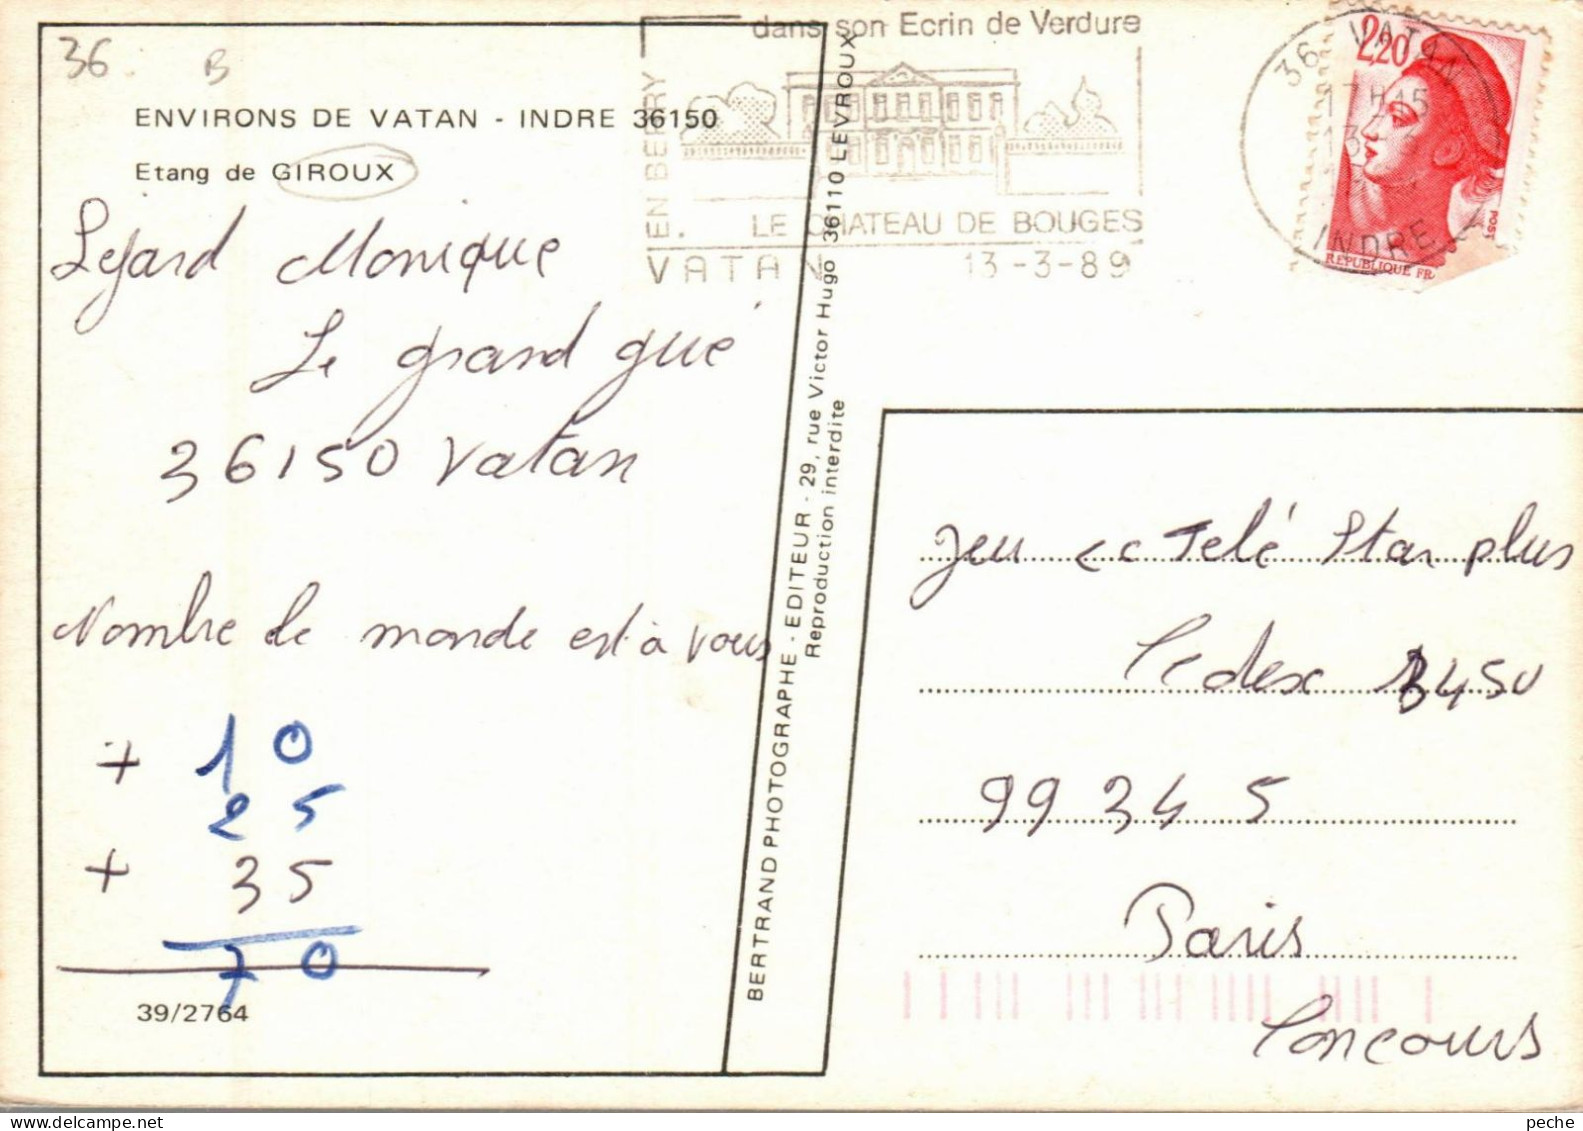 36 B
ENVIRONS DE VATAN - INDRE 36150
Etang de GIROUX
Lejard Monique
Le grand gué
36150 Vatan
Nombre le monde est à vous
+ 10
25
+ 35
70
39/2764
BERTRAND PHOTOGRAPHE - EDITEUR - 29, rue Victor Hugo 36110 LEVROUX
Reproduction interdite
dans son Ecrin de Verdure
EN BERRY
LE CHATEAU DE BOUGES
VATAN 13-3-89
36 VATAN
17H15
13
INDRE
2,20
POST
REPUBLIQUE FR
Jeu Telé Star plus
Cedex 3450
99345
Paris
Concours
peche